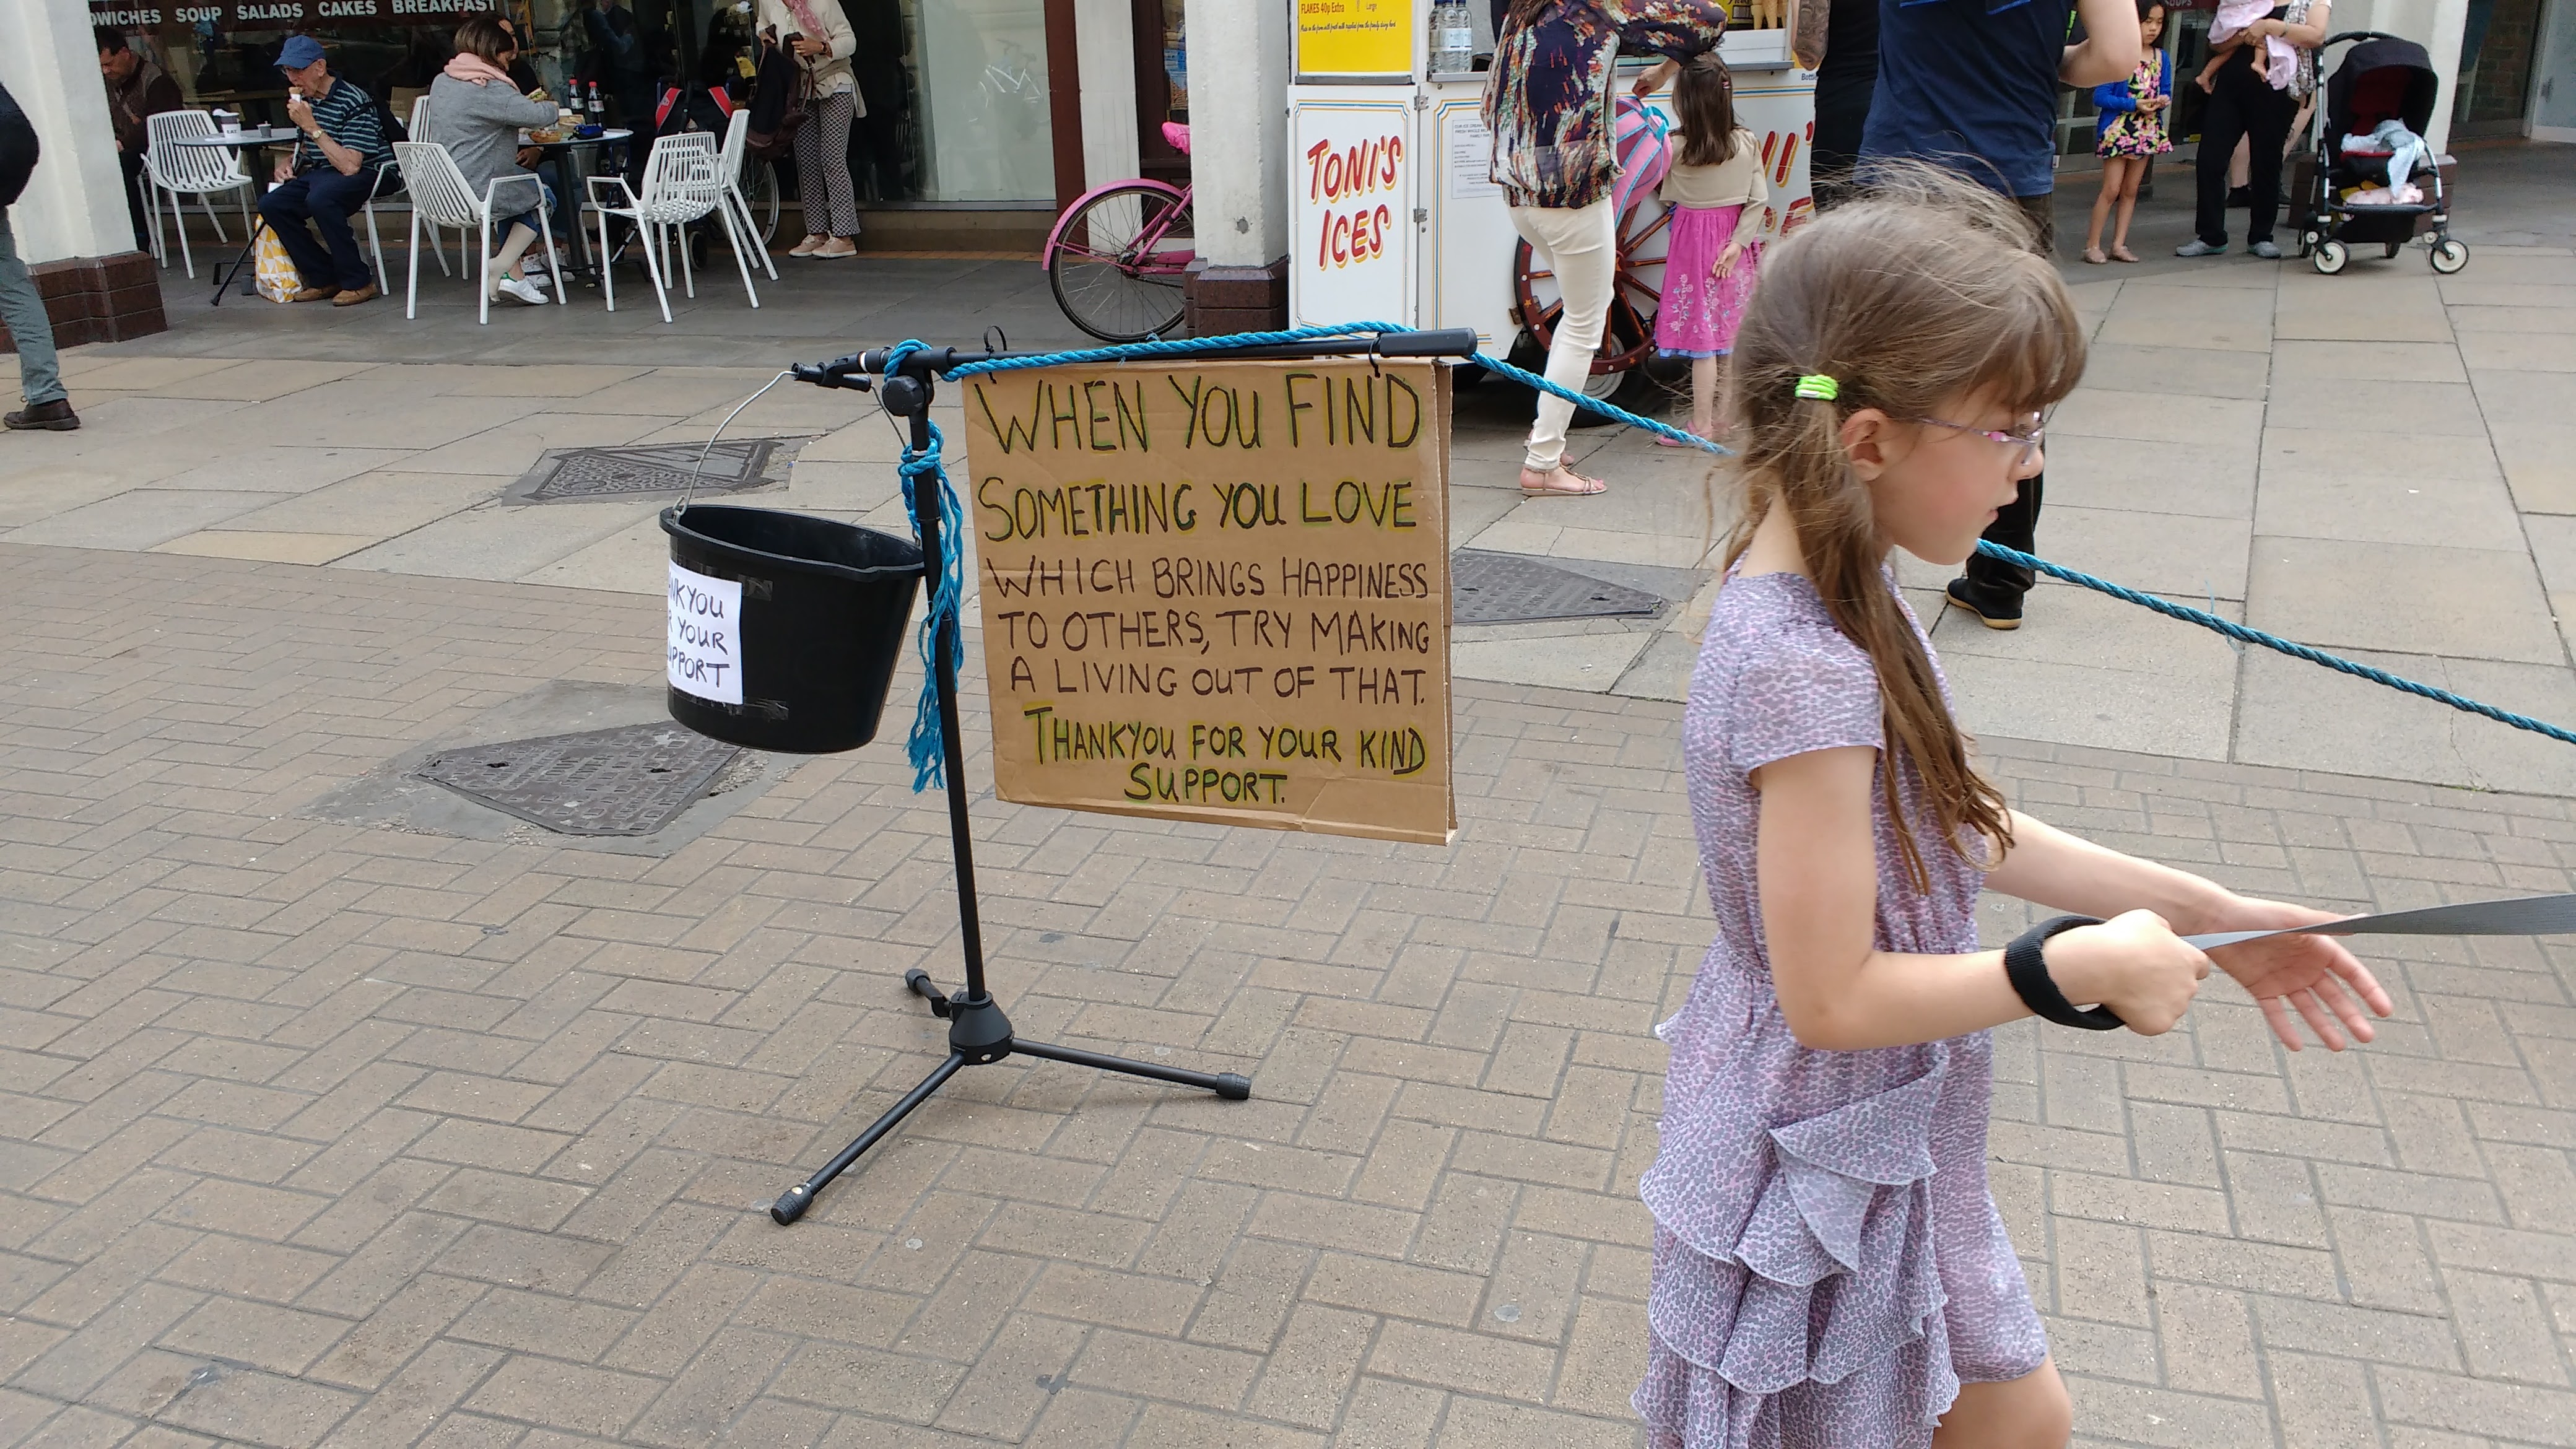 SOUP SALADS CAKES BREAKFAST
FLAKES 40p Extra
Large
TONI'S
ICES
WHEN YOU FIND
SOMETHING YOU LOVE
WHICH BRINGS HAPPINESS
TO OTHERS, TRY MAKING
A LIVING OUT OF THAT.
THANKYOU FOR YOUR KIND
SUPPORT.
NKYOU
YOUR
PPORT